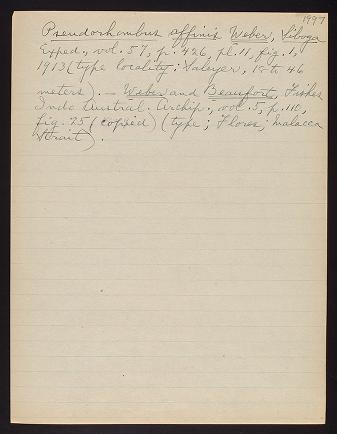 1997
Pseudorhombus affinis Weber, Siboga
Exped., vol. 57, p. 426, pl. 11, fig. 1,
1913 (type locality: Saleyer, 18 to 46
meters). — Weber and Beaufort, Fishes
Indo Austral. Archip., vol. 5, p. 110,
fig. 25 (copied) (type; Flores; Malacca
Strait).